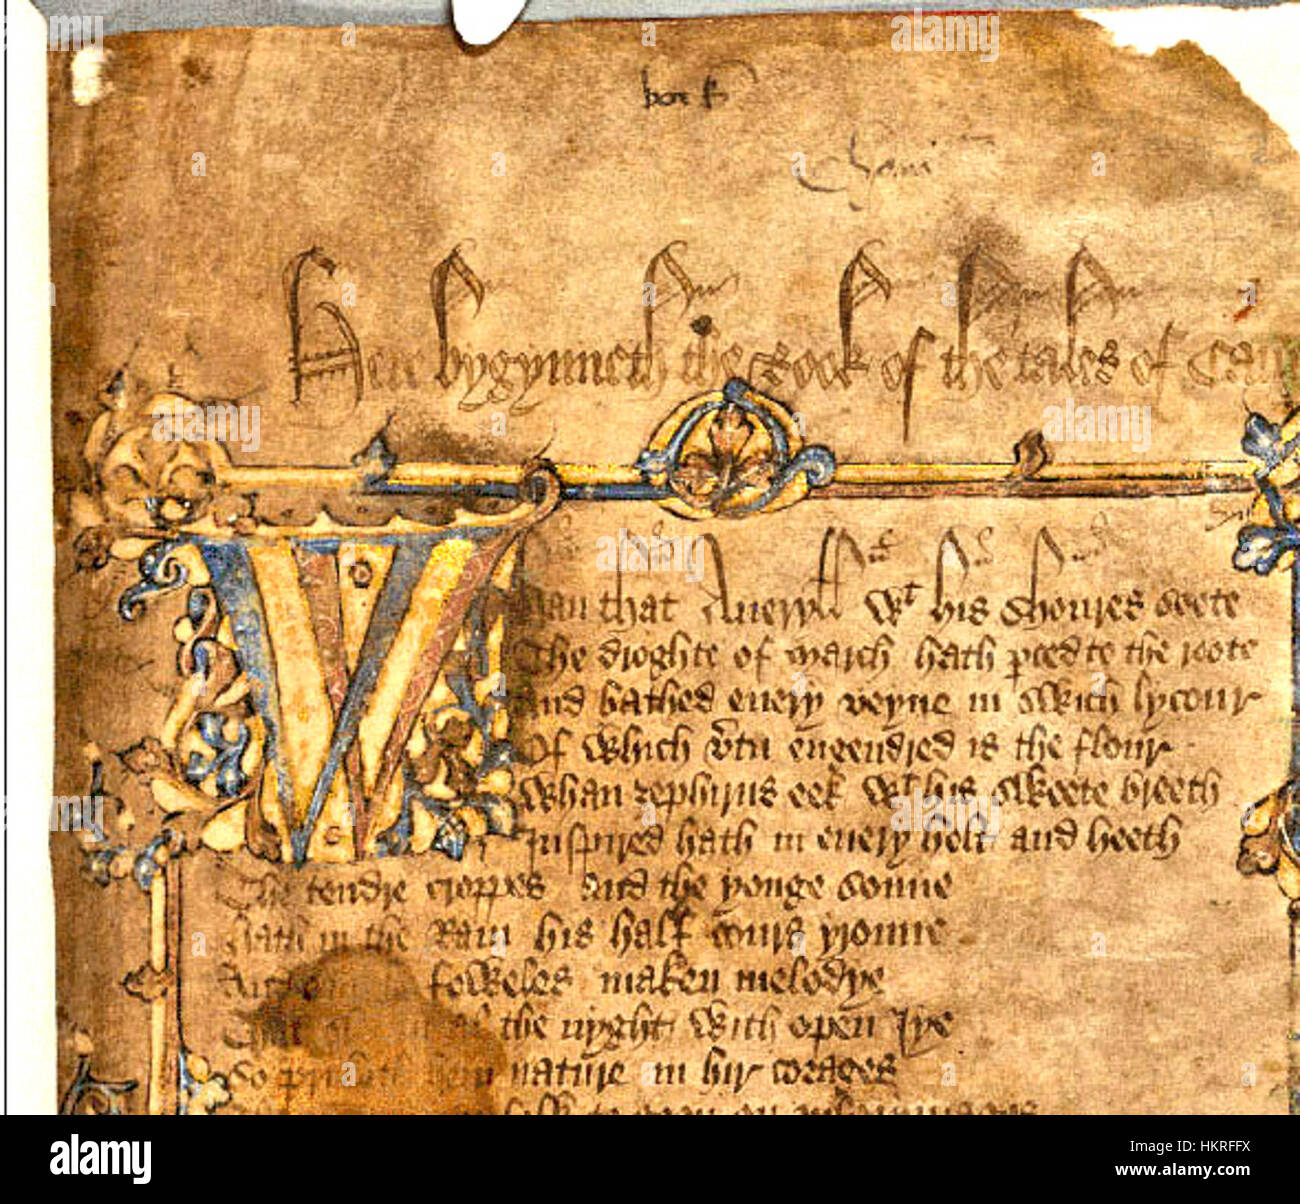 Here bygynneth the Book of the tales of Cau
Whan that Aueryll wt his shoures soote
The droghte of march hath pced to the roote
And bathed euery veyne in swich lycour
Of which vtu engendred is the flour
Whan zephirus eek wt his sweete breeth
Inspired hath in euery holt and heeth
The tendre croppes and the yonge sonne
Hath in the Ram his half cours yronne
foweles maken melodye
That the nyght with open Iye
So hem nature in hir corages
alamy
Image ID: HKRFFX
www.alamy.com